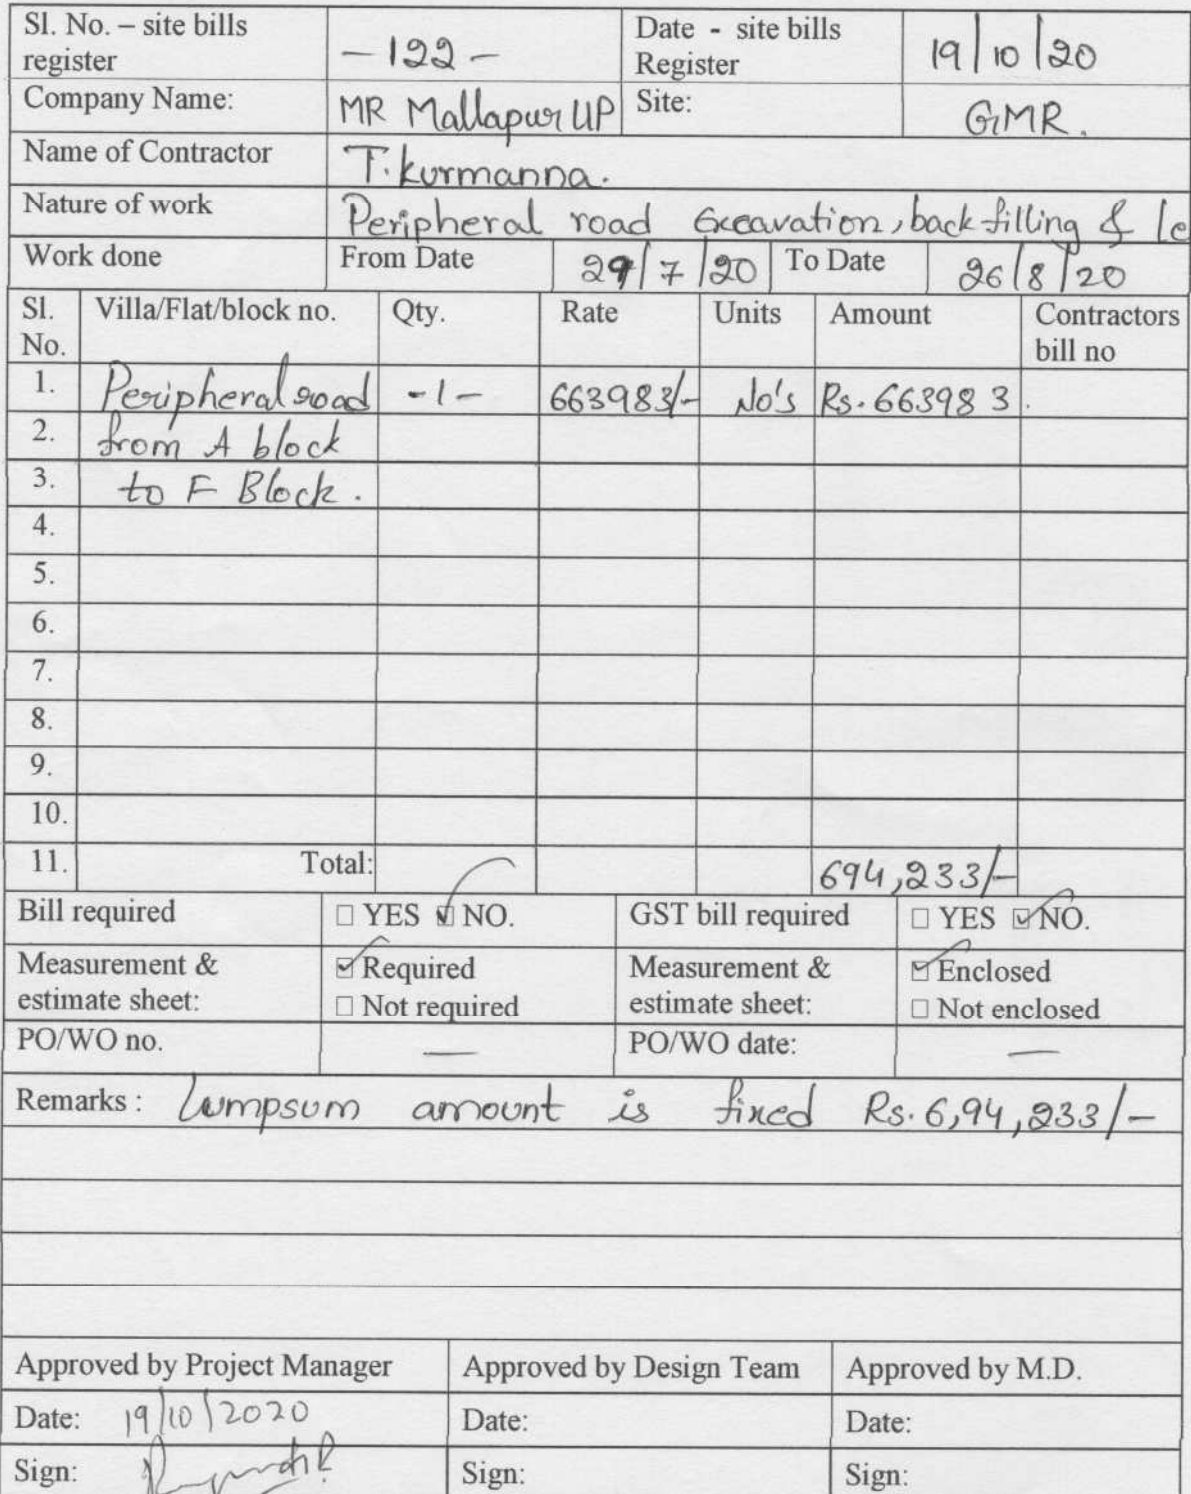 Sl. No. – site bills register -122- Date - site bills Register 19/10/20
Company Name: MR Mallapur LLP Site: GMR.
Name of Contractor T. kurmanna.
Nature of work Peripheral road Excavation, back filling & le
Work done From Date 29/7/20 To Date 26/8/20
Sl. No. Villa/Flat/block no. Qty. Rate Units Amount Contractors bill no
1. Peripheral road -1- 663983/- No's Rs. 663983
2. from A block
3. to F Block.
4.
5.
6.
7.
8.
9.
10.
11. Total: 694,233/-
Bill required ☐ YES ☑ NO. GST bill required ☐ YES ☑ NO.
Measurement & estimate sheet: ☑ Required Measurement & estimate sheet: ☑ Enclosed
☐ Not required ☐ Not enclosed
PO/WO no. — PO/WO date: —
Remarks : Lumpsum amount is fixed Rs. 6,94,233/-
Approved by Project Manager Approved by Design Team Approved by M.D.
Date: 19/10/2020 Date: Date:
Sign: Sign: Sign: